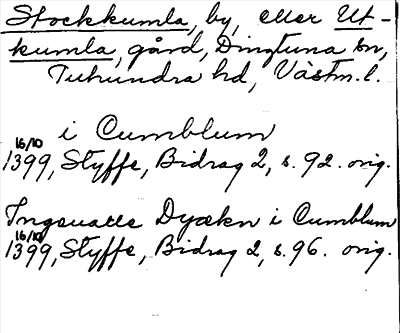 Stockkumla, by, eller Ut-
kumla, gård, Dingtuna sn,
Tuhundra hd, Västm. l.
i Cumblum
16/10
1399, Styffe, Bidrag 2, s. 92. orig.
Ingeualle Dyækn i Cumblum
16/10
1399, Styffe, Bidrag 2, s. 96. orig.